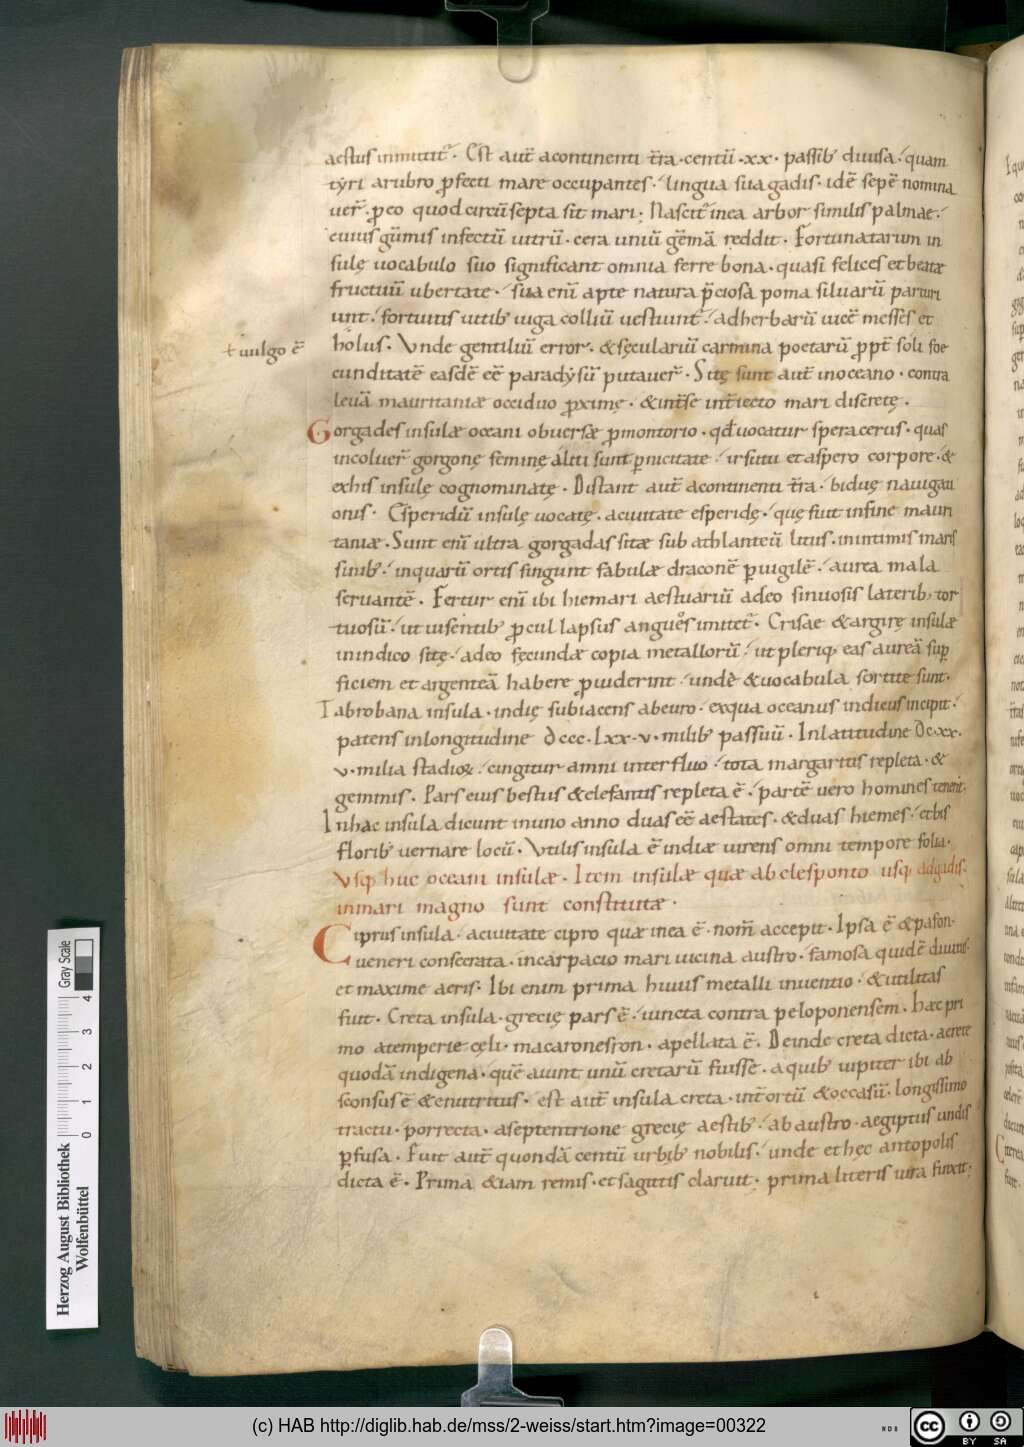 aestus inmittit᷑. Est aut̄ acontinenti t̄ra. centū. xx. passib; diuisa. quam
tyri arubro ꝓfecti mare occupantes. lingua sua gadis. idē sepē nomina
uer̄. ꝓ eo quod circūsepta sit mari; Nascit᷑ inea arbor similis palmae.
cuius gūmis infectū uitrū. cera uniū gēmā reddit. Fortunatarum in
sulę uocabulo suo significant omnia ferre bona. quasi felices et beatæ
fructuū ubertate. sua enī apte natura p̄ciosa poma siluarū parturi
unt. fortuitis uitib; iuga colliū uestiunt᷑. ad herbarū uicē messes et
† uulgo ē
holus. Vnde gentiliū error. & sęculariū carmina poetarū ꝓpt̄ soli foe
cunditatē easdē eē paradysū putauer̄. Sitę sunt aut̄ inoceano. contra
leuā mauritaniæ occiduo ꝓximę. & int̄se int̄iecto mari discretę.
Gorgades insulæ oceani obuersæ ꝓmontorio. qđ uocatur speracerus. quas
incoluer̄ gorgonę feminę aliti sunt ꝑnicitate. irsutu et aspero corpore. &
exhis insulę cognominatę. Distant aut̄ acontinenti t̄ra. biduę nauigati
onis. Esperidū insulę uocatę. aciuitate esperidę. quę fuit infine mauri
taniæ. Sunt enī ultra gorgadas sitæ sub athlanteū litus. inintimis maris
sinib;. inquarū ortis fingunt fabulæ draconē ꝑuigilē. aurea mala
seruantē. Fertur enī ibi hiemari aestuariū adeo sinuosis laterib; tor
tuosū. ut uisentib; ꝓcul lapsus angues imitet᷑. Crisae & argirę insulæ
inindico sitę. adeo fęcundæ copia metallorū. ut pleriq; eas aureā supꝑ
ficiem et argenteā habere ꝓuiderint. undē & uocabula sortite sunt.
Tabrobana insula. indię subiacens abeuro. exqua oceanus indicus incipit.
patens inlongitudine dccc. lxx. v. milib; passuū. Inlatitudine Dc. xx.
v. milia stadioꝝ. cingitur amni interfluo. tota margaritis repleta. &
gemmis. Pars eius bestiis & elefantis repleta ē. partē uero homines tenent.
Inhac insula dicunt inuno anno duas eē aestates. & duas hiemes. et bis
florib; uernare locū. Vtilis insula ē indiæ uirens omni tempore folia.
Vsq; huc oceani insulæ. Item insulæ quæ ab elesponto usq; adgadis.
inmari magno sunt constitutæ.
Ciprus insula. aciuitate cipro quæ inea ē. nom̄ accepit. Ipsa ē & pafon.
ueneri consecrata. incarpacio mari uicina austro. famosa quidē diuitiis.
et maxime aeris. Ibi enim prima huius metalli inuentio. & utilitas
fuit. Creta insula. grecię pars ē. iuncta contra peloponensem. haec pri
mo atemperie cęli. macaronesron. apellata ē. Deinde creta dicta. acrete
quodā indigena. quē aiunt unū cretarū fuisse. aquib; iupiter ibi ab
sconsus ē & enutritus. est aut̄ insula creta. int̄ ortū & occasū. longissimo
tractu. porrecta. aseptentrione grecię aestib;. ab austro. aegiptiis undis
ꝑfusa. Fuit aut̄ quondā centū urbib; nobilis. unde et hęc antopolis
dicta ē. Prima &iam remis. et sagittis claruit; prima literis iura finxit;
Gray Scale
4 3 2 1 0
Herzog August Bibliothek
Wolfenbüttel
(c) HAB http://diglib.hab.de/mss/2-weiss/start.htm?image=00322
cc BY SA